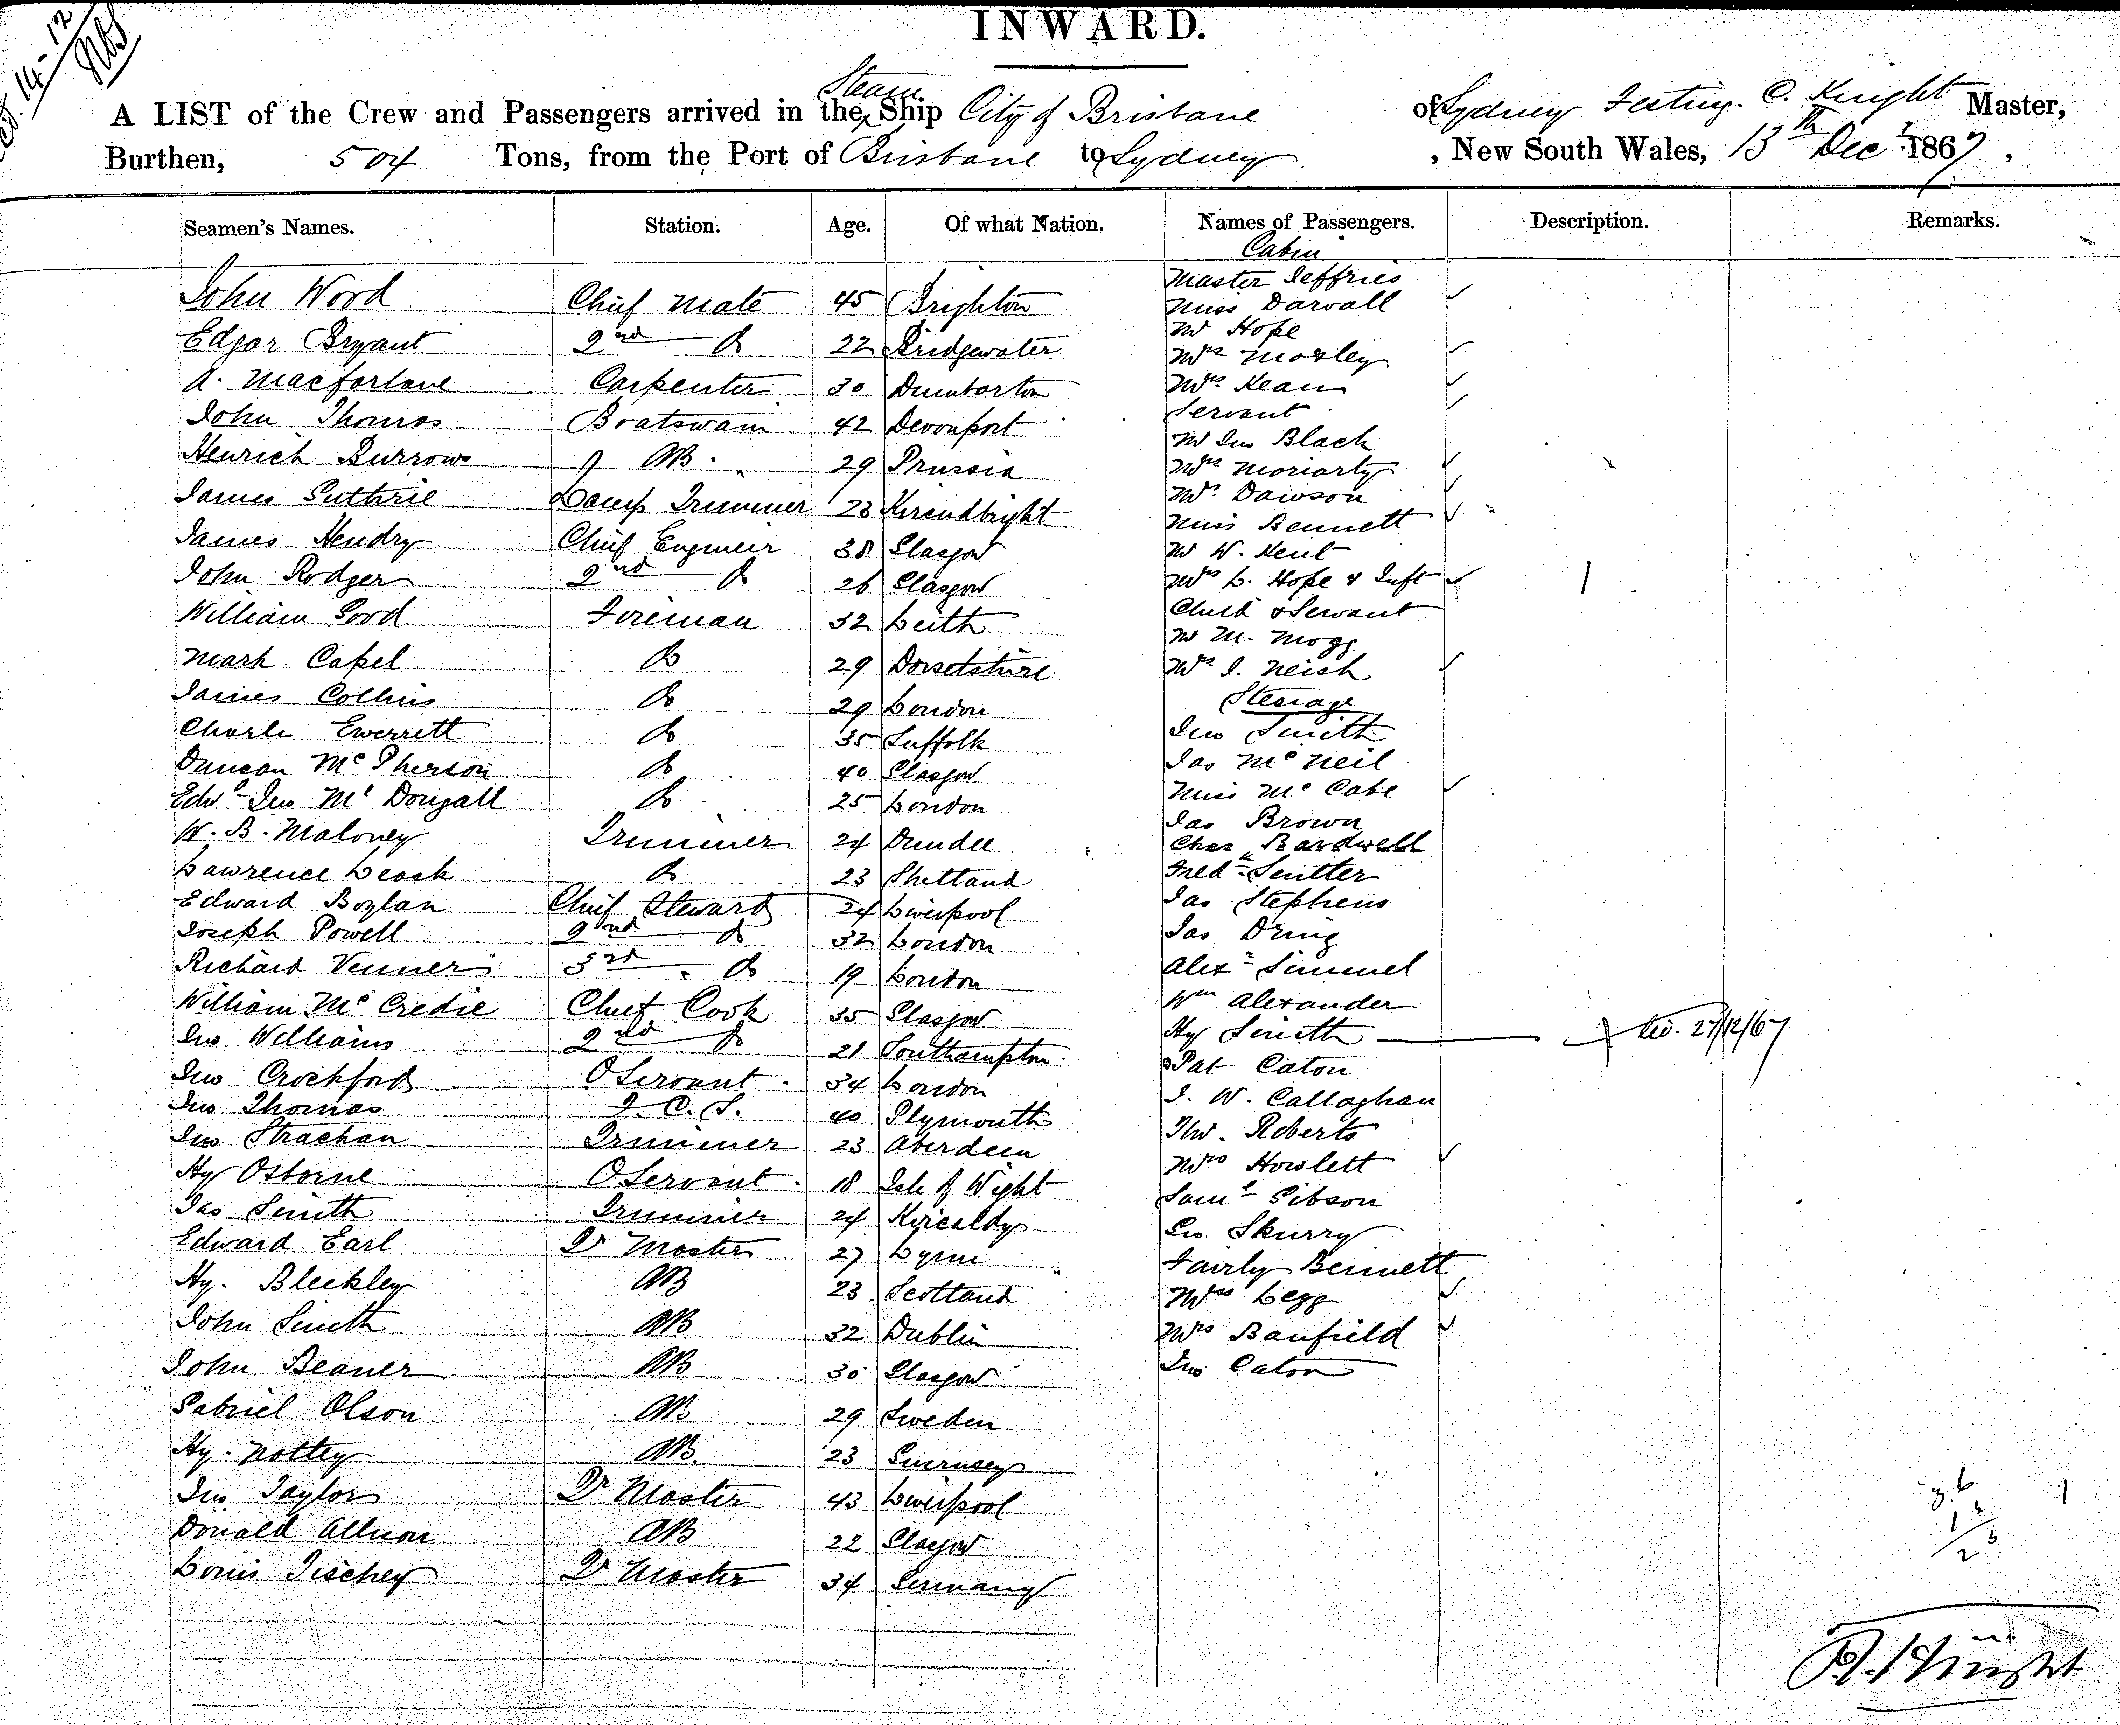 INWARD.
A LIST of the Crew and Passengers arrived in the Steam Ship City of Brisbane of Sydney Festing. C. Knight Master,
Burthen, 504 Tons, from the Port of Brisbane to Sydney, New South Wales, 13th Decr 1867.
Seamen's Names. Station. Age. Of what Nation. Names of Passengers. Description. Remarks.
Cabin
John Wood Chief Mate 45 Brighton Master Jeffries
Miss Darvall
Edgar Bryant 2nd Do 22 Bridgewater Mr Hope
Mrs Morley
A. Macfarlane Carpenter 30 Dumbarton Mrs Kean
John Thomas Boatswain 42 Devonport Servant
Mr Jno Black
Henrich Burrows AB. 29 Prussia Mrs Moriarty
James Guthrie Lamp Trimmer 23 Kircudbright Mrs Dawson
Miss Bennett
James Hendry Chief Engineer 38 Glasgow Mr W. Kent
John Rodger 2nd Do 26 Glasgow Mrs L. Hope & Inft
William Good Fireman 32 Leith Child & Servant
Mr M. Mogg
Mark Capel Do 29 Dorsetshire Mrs J. Neish
James Collins Do 29 London Steerage
Charle Ewerrett Do 35 Suffolk Jno Smith
Duncan McPherson Do 40 Glasgow Jas McNeil
Edwd Jno McDougall Do 25 London Miss McCabe
Jas Brown
W. B. Maloney Trimmer 24 Dundee Chas Bardwell
Lawrence Leask Do 23 Shetland Fredk Smitter
Edward Boylan Chief Steward 24 Liverpool Jas Stephens
Joseph Powell 2nd Do 32 London Jas Dring
Richard Venner 3rd Do 19 London Alexr Simmel
William McCredie Chief Cook 35 Glasgow Wm Alexander
Jno Williams 2nd Do 21 Southampton Hy Smith 27/12/67
Pat Caton
Jno Crockford O Servant 34 London J. W. Callaghan
Jno Thomas F. C. S. 40 Plymouth
Jno Strachan Trimmer 23 Aberdeen Thos. Roberts
Hy Osborne O Servant 18 Isle of Wight Mrs Howlett
Jas Smith Trimmer 24 Kircaldy Saml Gibson
Edward Earl Qr Master 27 Lynn Geo. Skurry
Fairly Bennett
Hy. Bleckley AB 23 Scotland Mrs Legg
John Smith AB 32 Dublin Mrs Banfield
John Beaner AB 30 Glasgow Jno Caton
Gabriel Olson AB 29 Sweden
Hy. Notley AB 23 Guernsey
Jno Taylor Qr Master 43 Liverpool
Donald Allison AB 22 Glasgow
Louis Tischey Qr Master 34 Germany